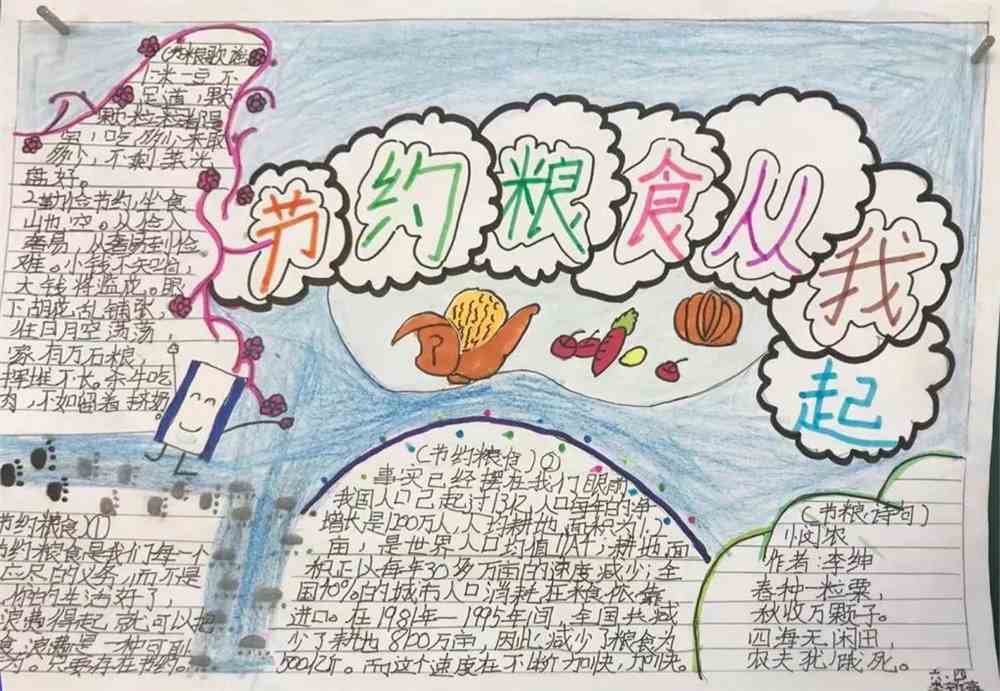 节约粮食从我起
(节粮歌谣
1.米一豆不
足道,颗
颗粒粒
吃多少来取
多少,不剩菜光
盘好。
2.勤俭节约,坐食
山也空。从俭入
奢易,从奢到俭
难。小钱不知
大钱将
下胡花乱铺张,
往日月空荡荡,
家有万石粮,
挥堆不长。杀牛吃
肉,不如留着挤奶。
节约粮食)(1)
节约粮食是我们每一个
应尽的义务,而不是
你的生活好了,
浪费得起就可以把
食浪费是一种可耻
为。只要存在节约。
(节约粮食)②
事实已经摆在我们眼前
我国人口已起过13亿,人口每年的净
增长是1200万人,人均耕地面积为
亩,是世界人口均值 耕地面
积正以每年30多万亩的速度减少;全
国40%的城市人口消耗在粮依靠
进口。在1981年—1995年间,全国共减
少了耕地8100万亩,因此减少了粮食为
500亿斤。而这个速度在不断加快,加快。
(节粮诗句)
悯农
作者:李绅
春种一粒粟,
秋收万颗子。
四海无闲田,
农夫犹饿死。
六.四